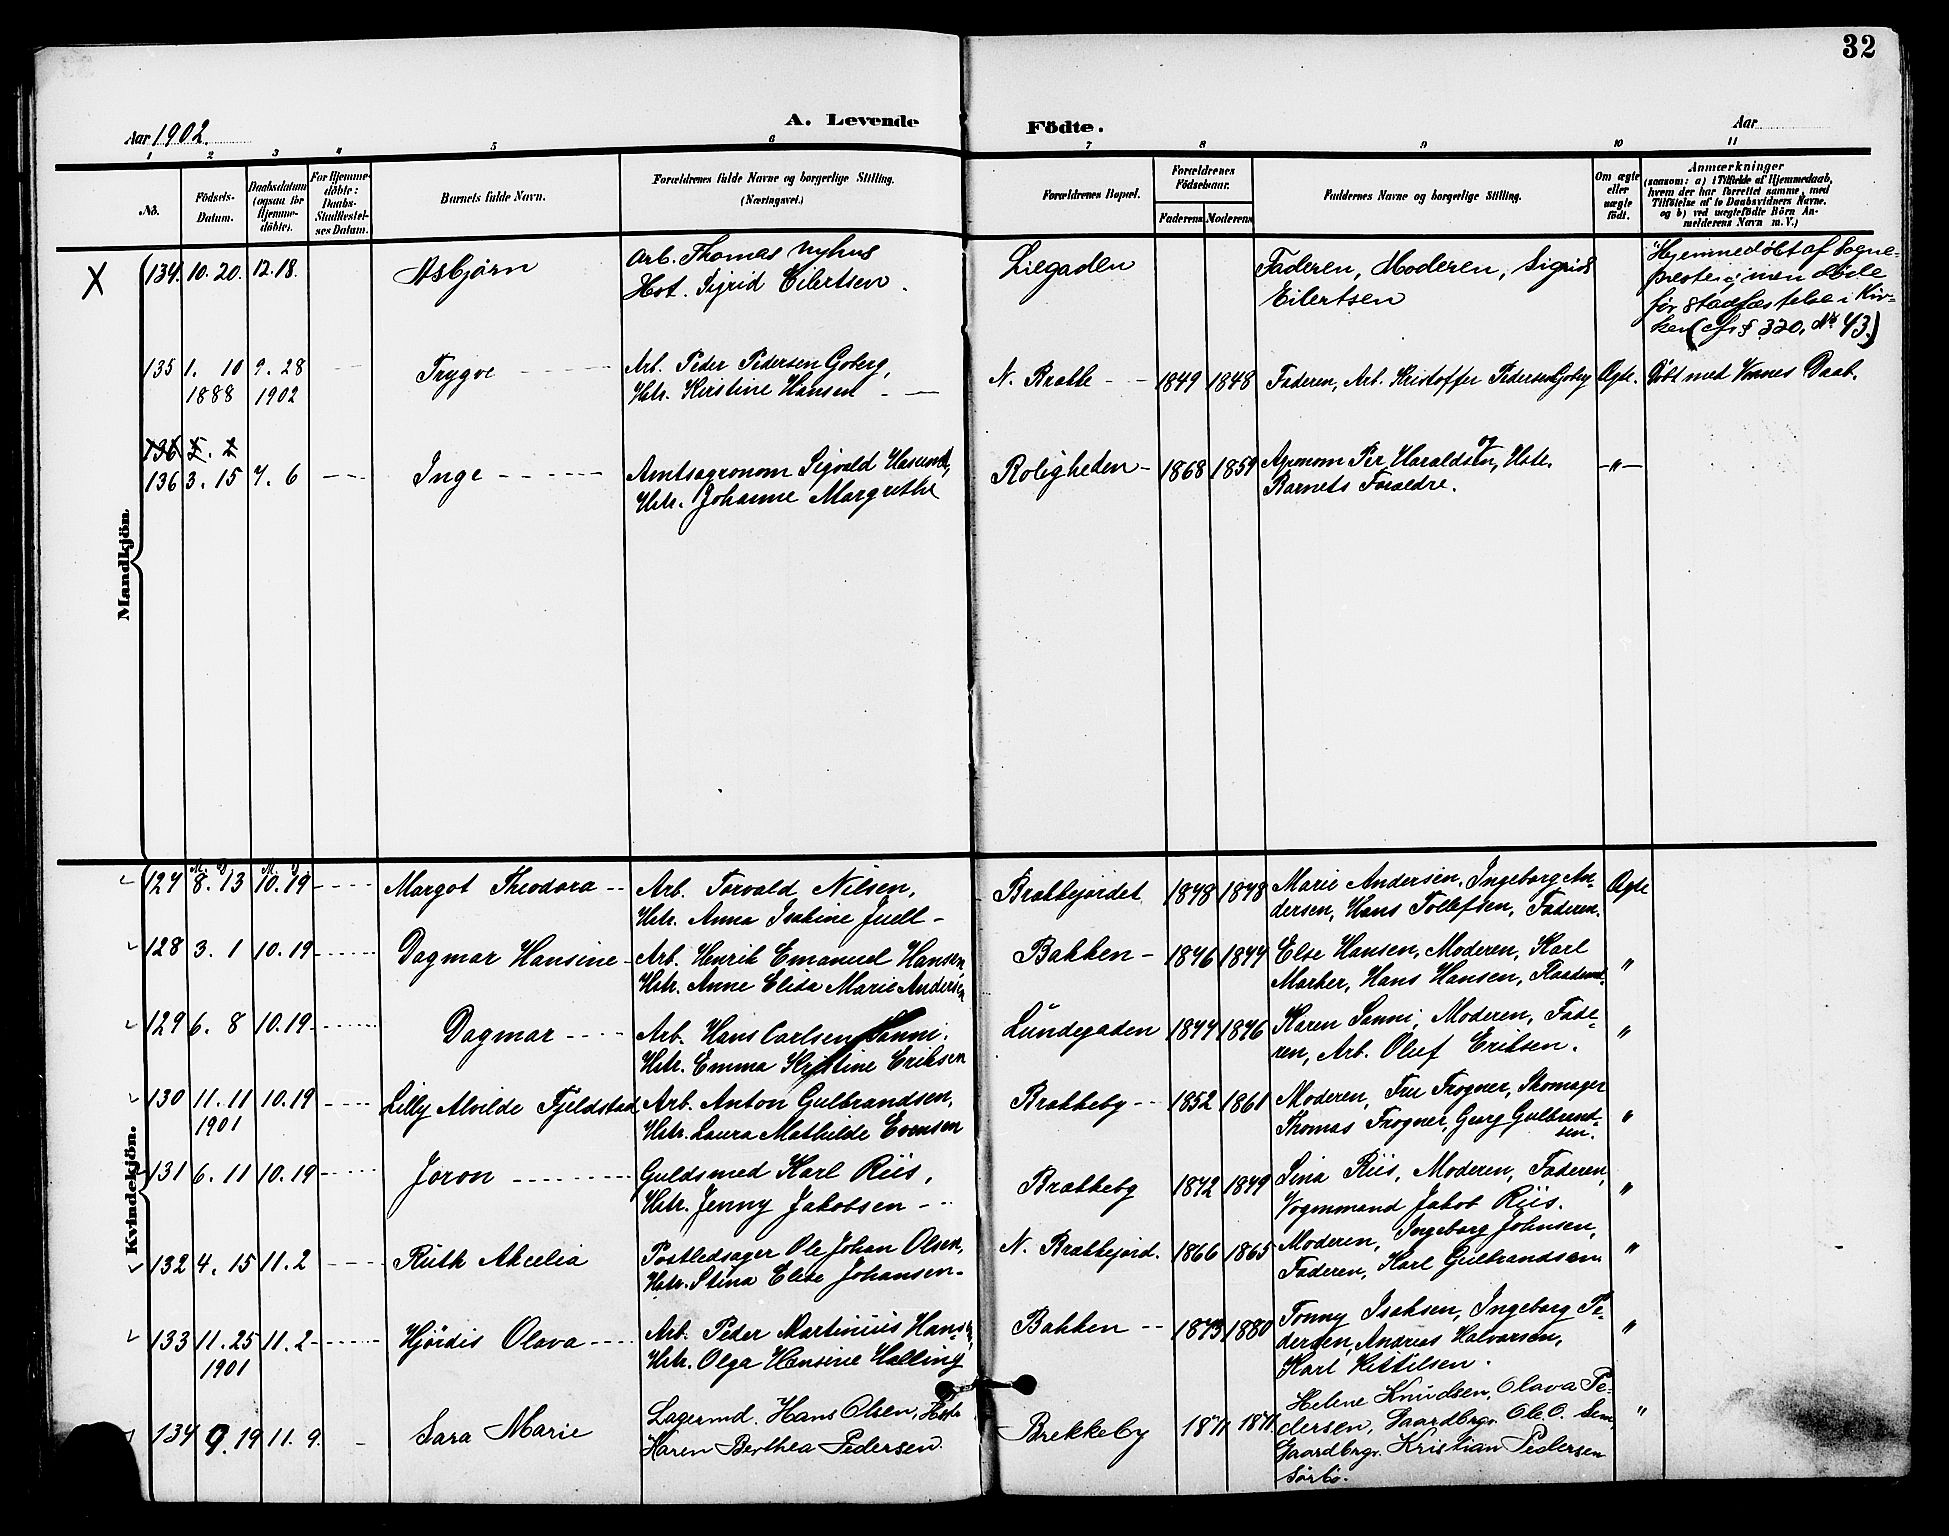 32
Aar 1902.
A. Levende Födte.
Aar
1 2 3 4 5 6 7 8 9 10 11
No.
Födsels-
Datum.
Daabsdatum
(ogsaa for
Hjemme-
döbte).
For Hjemme-
döbte:
Daabs-
Stadfæstel-
ses Datum.
Barnets fulde Navn.
Forældrenes fulde Navne og borgerlige Stilling.
(Næringsvei.)
Forældrenes Bopæl.
Forældrenes
Födselsaar.
Faderens Moderens
Faddernes Navne og borgerlige Stilling.
Om ægte
eller
uægte
födt.
Anmærkninger
(saasom: a) i Tilfælde af Hjemmedaab,
hvem der har forrettet samme, med
Tilföielse af to Daabsvidners Navne,
og b) ved uægtefödte Börn An-
melderens Navn m. V.)
Mandkjön.
X 134. 10. 20. 12. 18. Asbjørn Arb. Thomas Nyhus Liegaden Faderen, Moderen, Sigrid Hjemmedøbt af Sogne-
Hst. Sigrid Eilertsen. Eilertsen presten; men døde
før stadfæstelse i Kir-
ken (cfr. § 320, No 43.)
135 1. 10 9. 28 Trygve Arb. Peder Pedersen Goberg, N. Brække 1849 1848 Faderen, Arb. Kristoffer Pedersen Goberg Ægte. Døbt med Daab.
1888 1902 Hstr. Kirstine Hansen
136
136 3. 15 7. 6 Inge Amtsagronom Sigvald Hasund, Roligheden 1868 1859 Agronom Per Haraldsen, og Hstr. — " —
Hstr. Johanne Margrethe Barnets Forældre.
Kvindekjön.
M. D M. D
127 8. 13 10. 19 Margot Theodora Arb. Torvald Nilsen, Brækkejordet 1878 1878 Marie Andersen, Ingeborg An- Ægte
Hstr. Anna Isabine Juell dersen, Hans Tollefsen, Faderen.
128 3. 1 10. 19 Dagmar Hansine Arb. Henrik Emanuel Hansen Bakken 1876 1877 Else Hansen, Moderen, Karl "
Hstr. Anne Elise Marie Andersen Marker, Hans Hansen,
129 6. 8 10. 19 Dagmar Arb. Hans Carlsen Sanni. Lundegaden 1877 1876 Karen Sanni, Moderen, Fade- "
Hstr. Emma Kristine Eriksen ren, Arb. Oluf Eriksen.
130 11. 11 10. 19 Lilly Alvilde Fjeldstad Arb. Anton Gulbrandsen, Brækkeby 1852 1861 Moderen, Fru Trogner, Skomager "
1901 Hstr. Laura Mathilde Evensen Thomas Trogner, Georg Gulbrand-
sen.
131 6. 11 10. 19 Joron Guldsmed Karl Riis, Brækkeby 1872 1879 Sina Riis, Moderen, Faderen, "
Hstr. Jenny Jakobsen Vognmand Jakob Riis.
132 4. 15 11. 2 Ruth Akcelia Postledsager Ole Johan Olsen, N. Brækkejord. 1866 1865 Moderen, Ingeborg Johnsen, "
Hstr. Stina Elise Johansen Faderen, Karl Gulbrandsen
133 11. 25 11. 2 Hjørdis Olava Arb. Peder Martinius Hansen Bakken 1873 1880 Tonny Isaksen, Ingeborg Pe- "
1901 Hstr. Olga Hensine Halling dersen, Andreas Halvorsen,
Karl Kittilsen.
134 9. 19 11. 9. Sara Marie Lagermd. Hans Olsen, Hstr. Brekkeby 1871 1871 Helene Knudsen, Olava Pe- "
Karen Berthea Pedersen dersen, Gaardbrgr. Ole O. Sem,
Gaardbrgr. Kristian Pedersen
Sørbø.